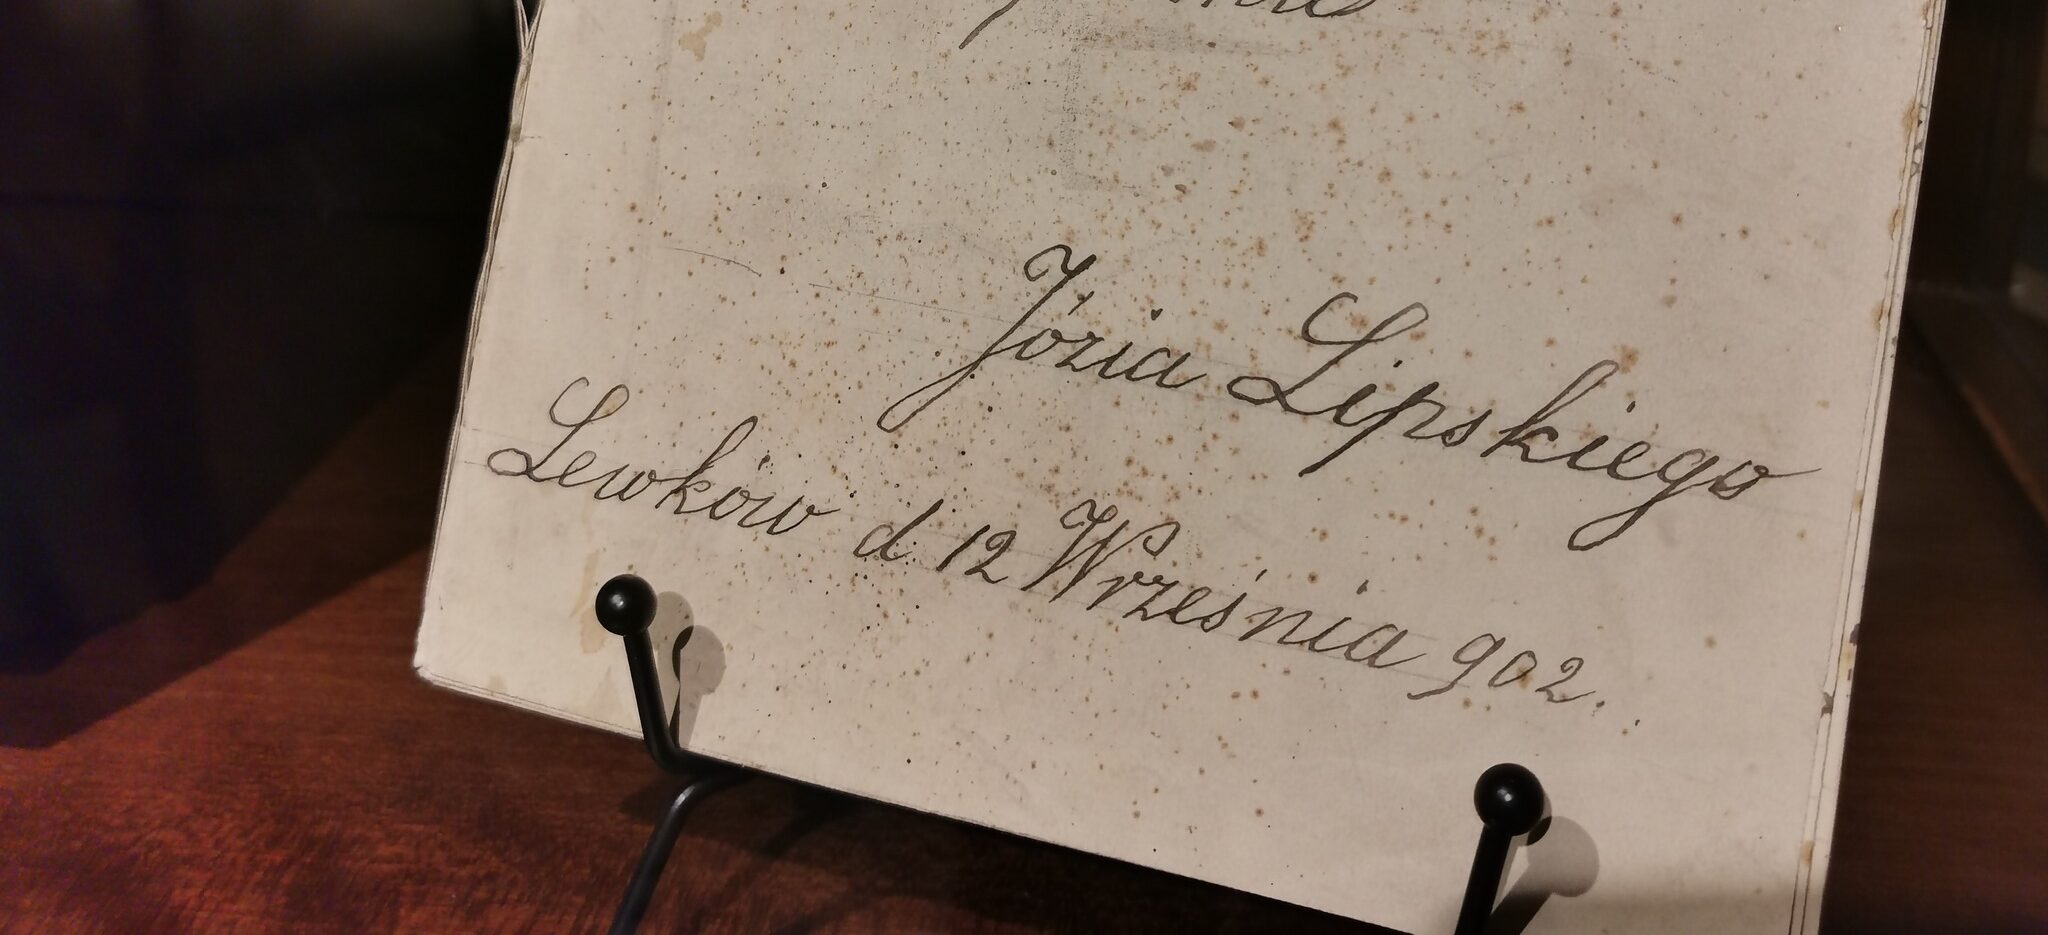 Józia Lipskiego
Lewków d 12 Września 902.